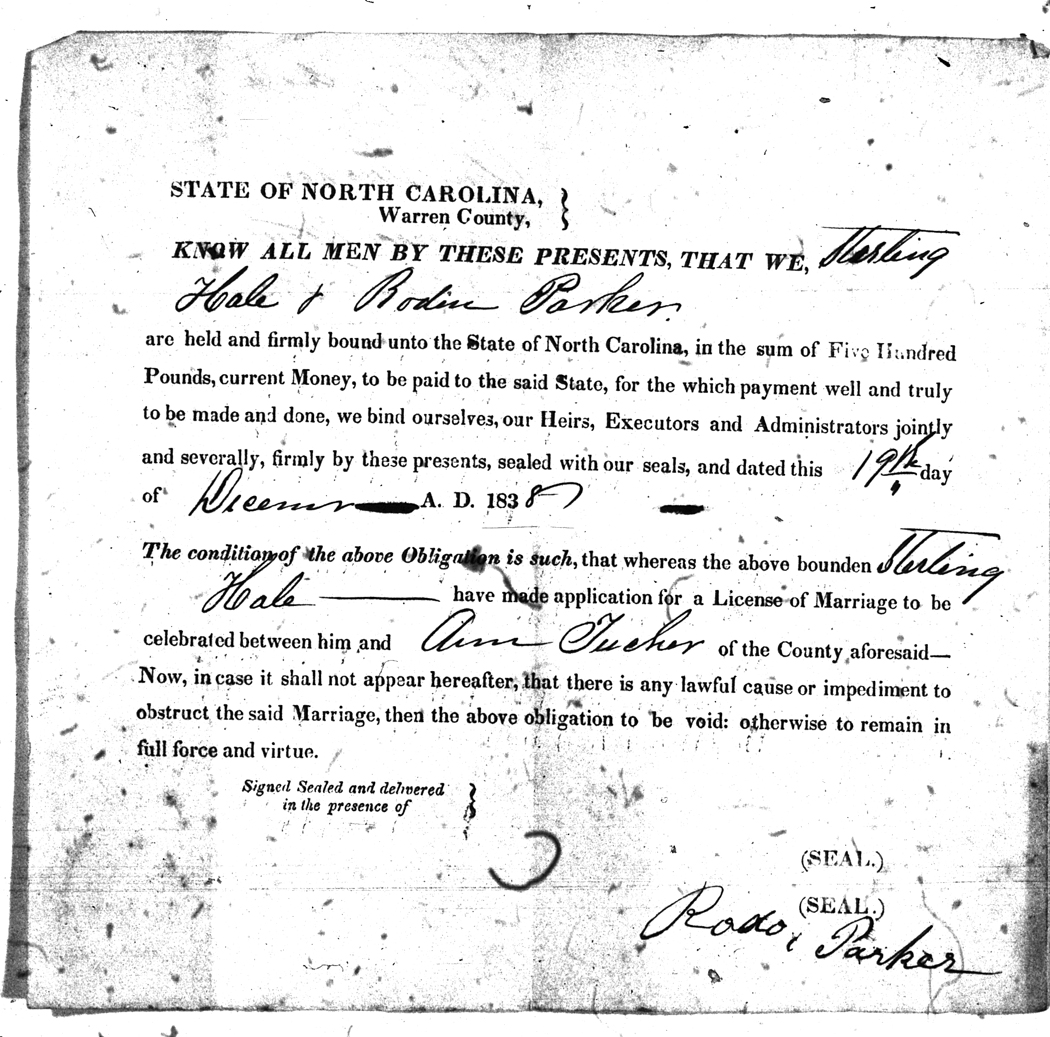 STATE OF NORTH CAROLINA,
Warren County,
KNOW ALL MEN BY THESE PRESENTS, THAT WE, Sterling
Hale & Rodin Parker.
are held and firmly bound unto the State of North Carolina, in the sum of Five Hundred
Pounds, current Money, to be paid to the said State, for the which payment well and truly
to be made and done, we bind ourselves, our Heirs, Executors and Administrators jointly
and severally, firmly by these presents, sealed with our seals, and dated this 19th day
of A. D. 1838
The condition of the above Obligation is such, that whereas the above bounden Sterling
Hale have made application for a License of Marriage to be
celebrated between him and Ann Tucker of the County aforesaid—
Now, in case it shall not appear hereafter, that there is any lawful cause or impediment to
obstruct the said Marriage, then the above obligation to be void: otherwise to remain in
full force and virtue.
Signed Sealed and delivered
in the presence of
(SEAL.)
(SEAL.)
Parker